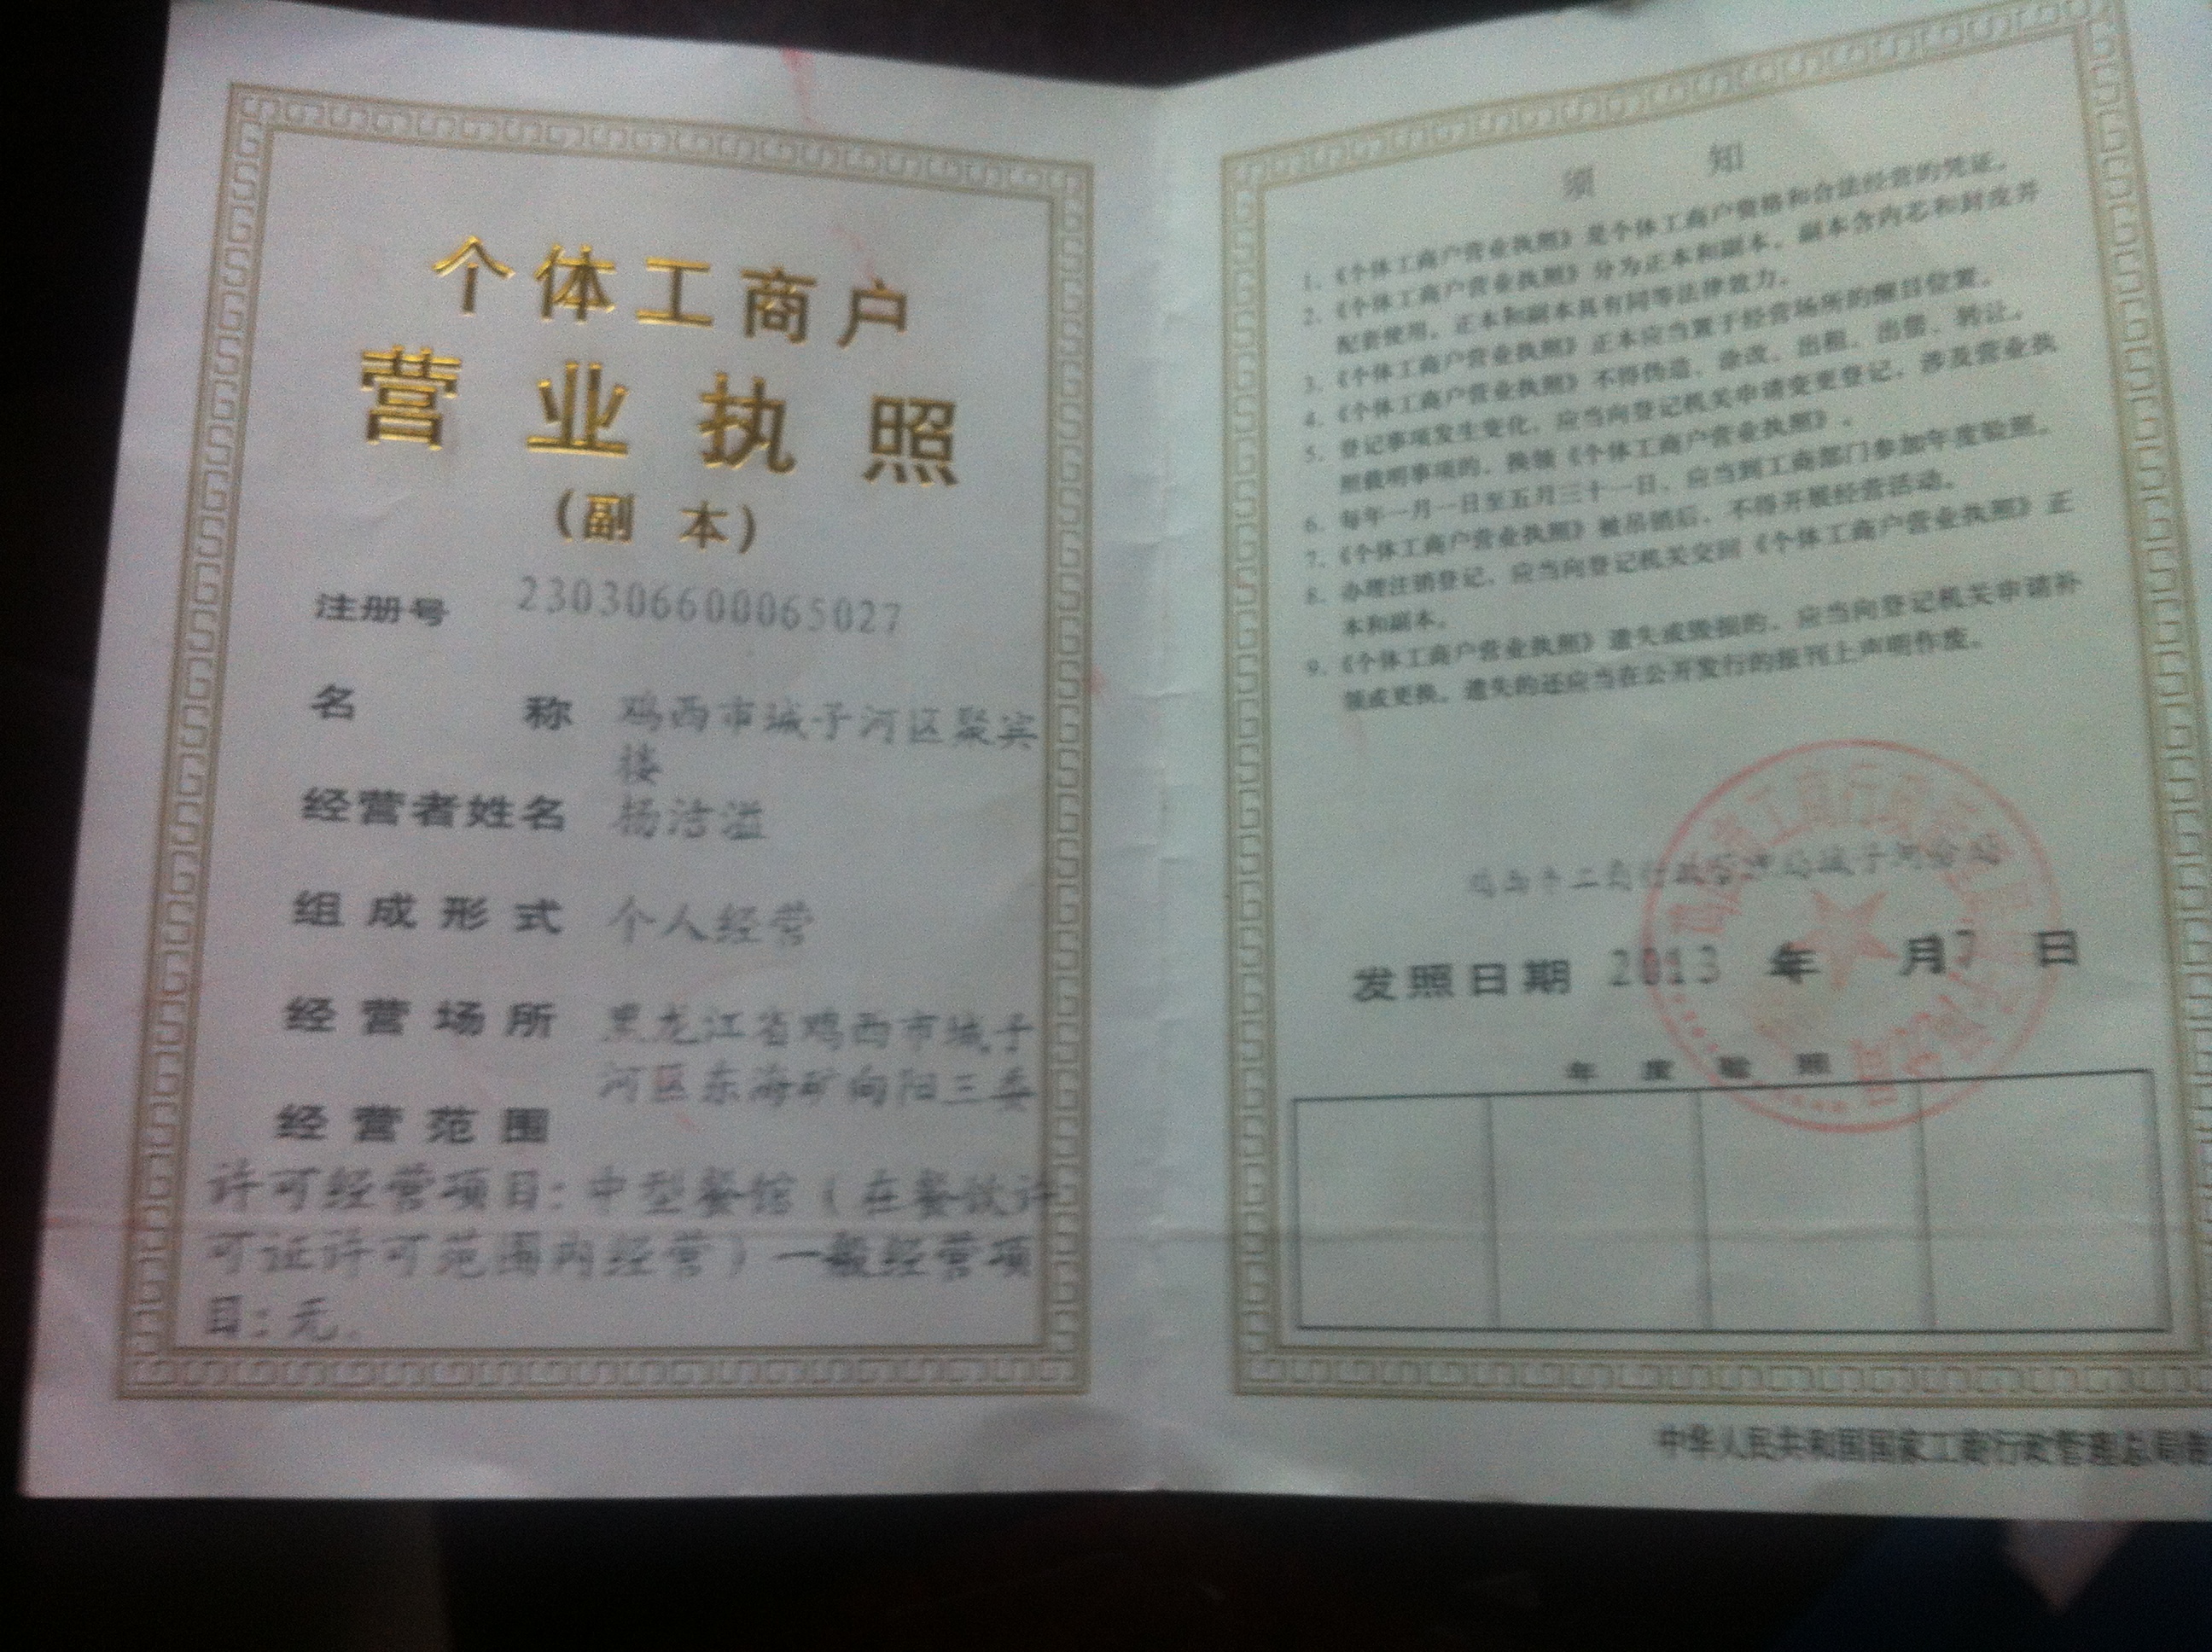 个体工商户
营业执照
(副 本)
注册号 230306600065027
名 称 鸡西市城子河区聚宾
楼
经营者姓名 杨洁溢
组成形式 个人经营
经营场所 黑龙江省鸡西市城子
河区东海矿向阳三委
经营范围
许可经营项目:中型餐馆(在餐饮许
可证许可范围内经营)一般经营项
目:无。
须 知
1. 《个体工商户营业执照》是个体工商户资格和合法经营的凭证。
2. 《个体工商户营业执照》分为正本和副本,副本含内芯和封皮并
配套使用。正本和副本具有同等法律效力。
3. 《个体工商户营业执照》正本应当置于经营场所的醒目位置。
4. 《个体工商户营业执照》不得伪造、涂改、出租、出借、转让。
5. 登记事项发生变化,应当向登记机关申请变更登记,涉及营业执
照载明事项的,换领《个体工商户营业执照》。
6. 每年一月一日至五月三十一日,应当到工商部门参加年度验照。
7. 《个体工商户营业执照》被吊销后,不得开展经营活动。
8. 办理注销登记,应当向登记机关交回《个体工商户营业执照》正
本和副本。
9. 《个体工商户营业执照》遗失或毁损的,应当向登记机关申请补
领或更换。遗失的还应当在公开发行的报刊上声明作废。
鸡西市工商行政管理局城子河分局
发照日期 2013 年 月 日
年 度 验 照
中华人民共和国国家工商行政管理总局